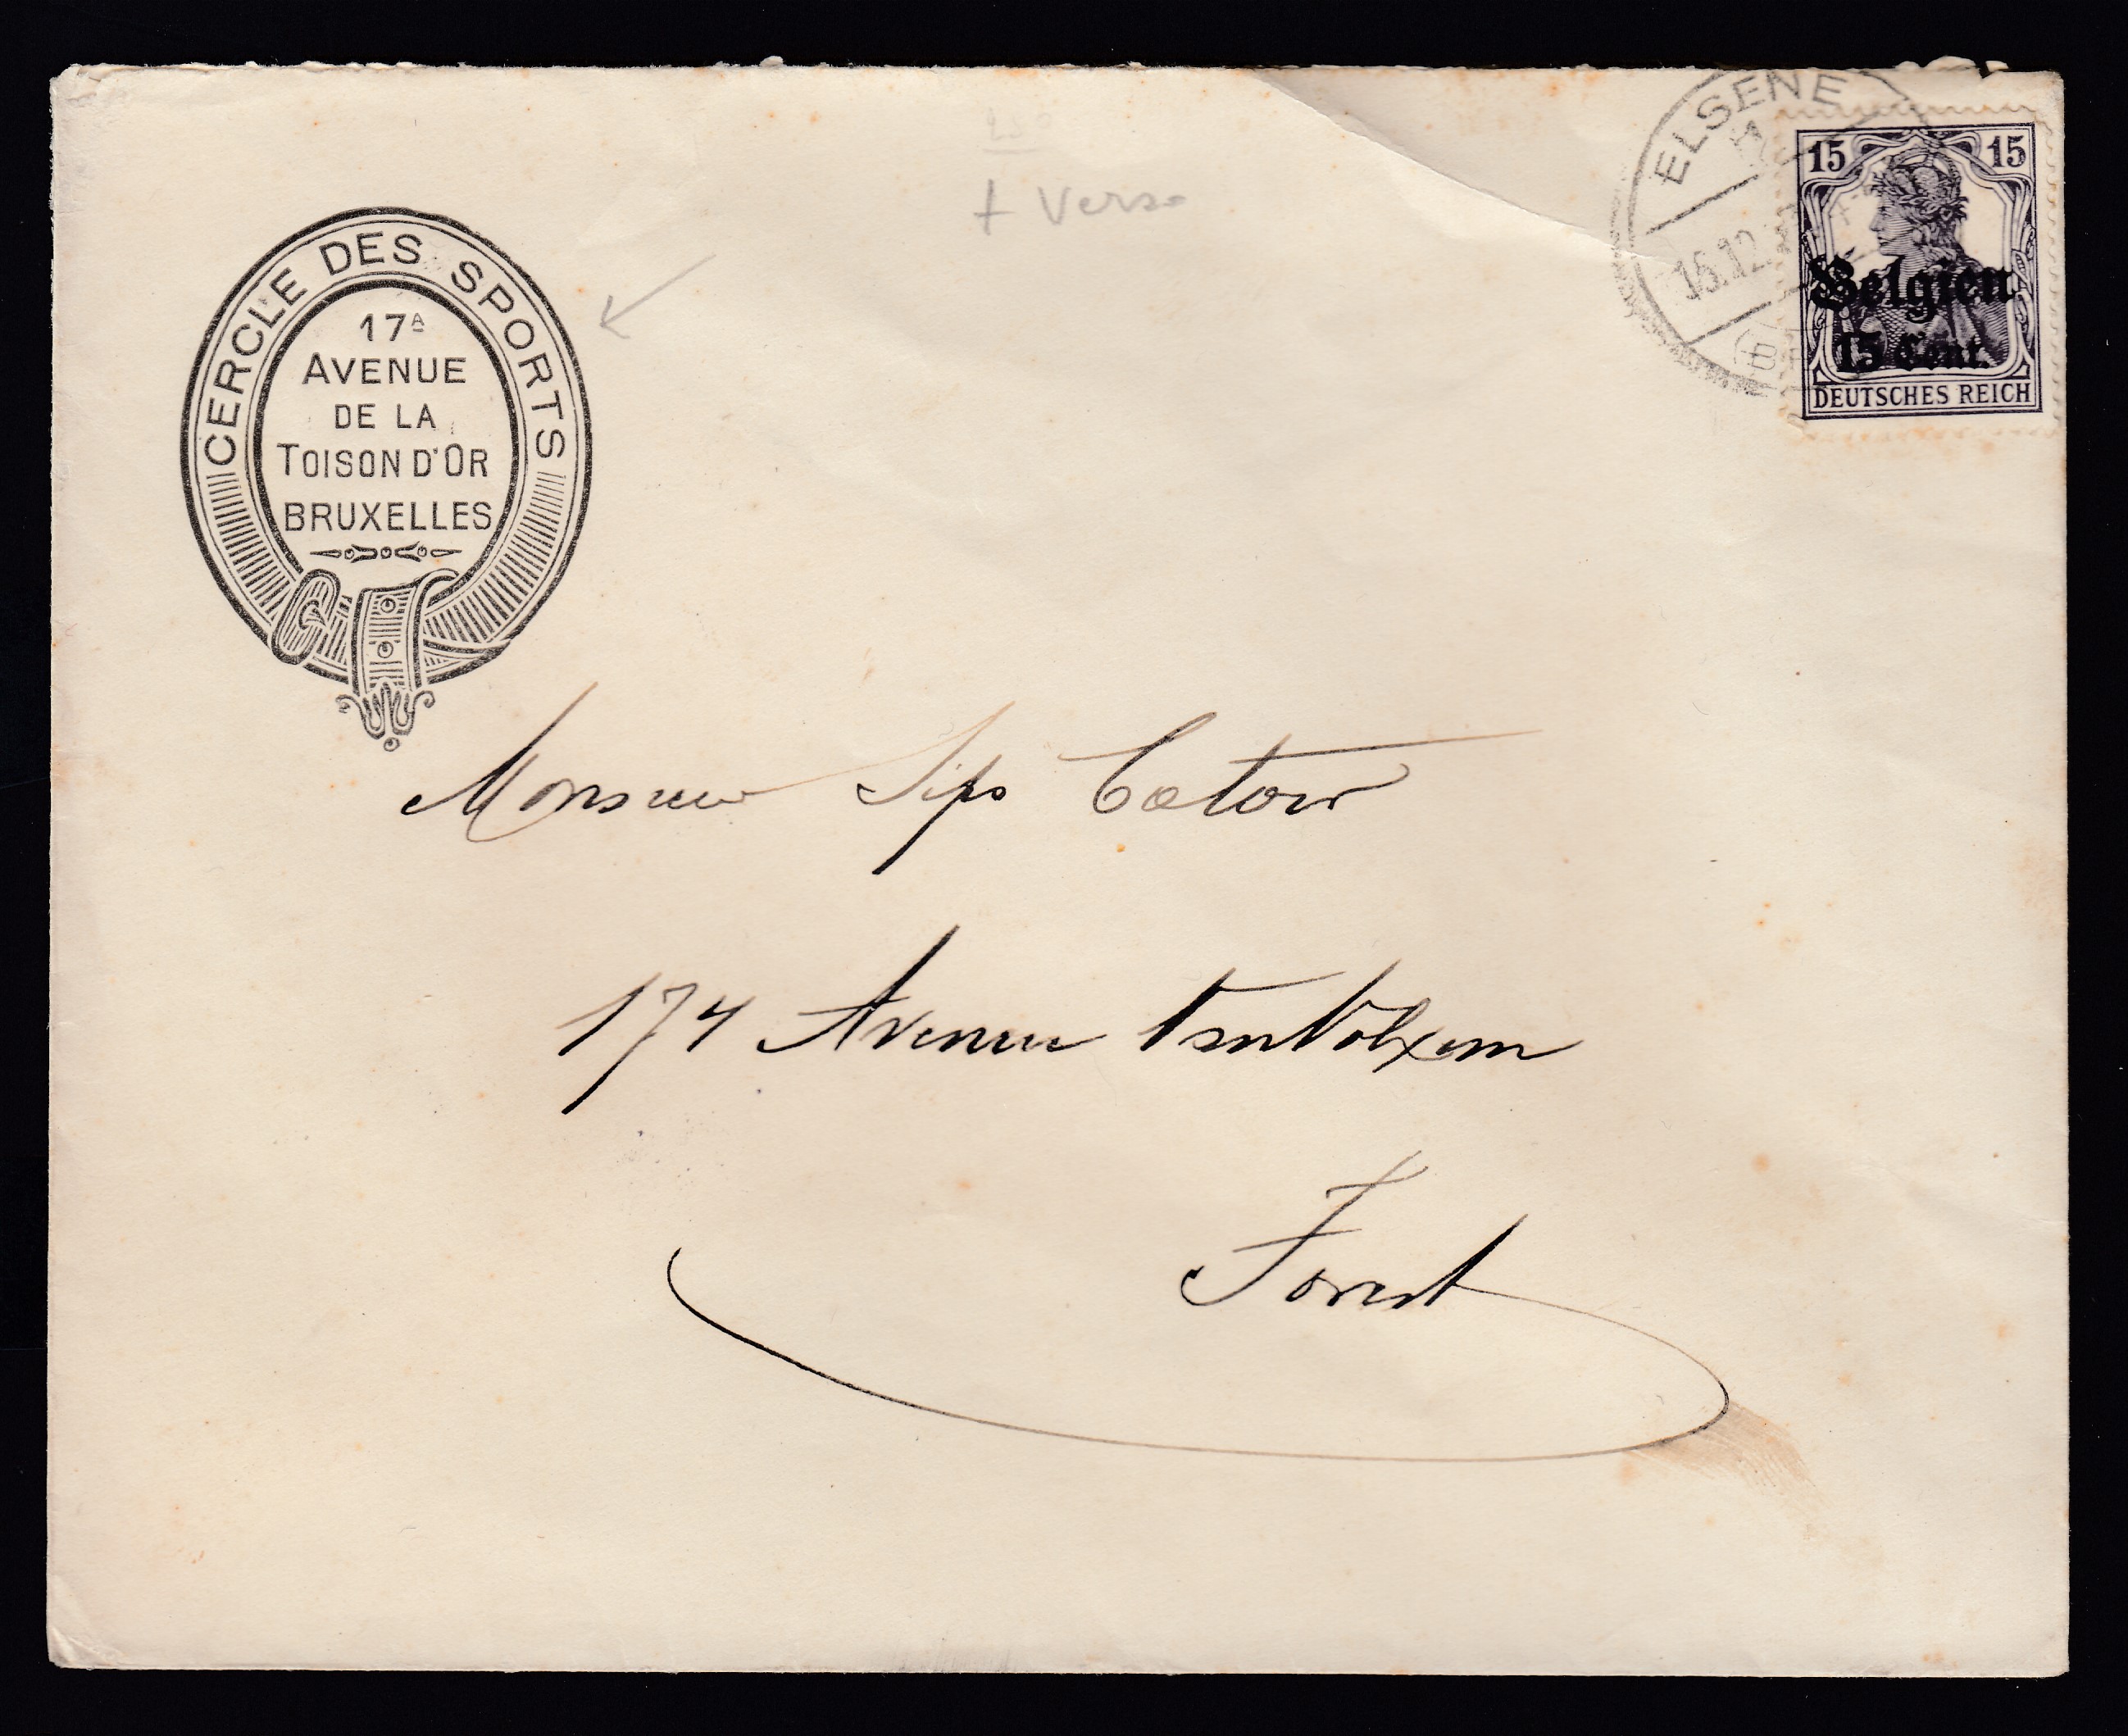 CERCLE DES SPORTS
17A
AVENUE
DE LA
TOISON D'OR
BRUXELLES
+ Verso
ELSENE
15 15
Belgien
15 Cent.
DEUTSCHES REICH
Monsieur Sips
174 Avenue VanVolxem
Forest